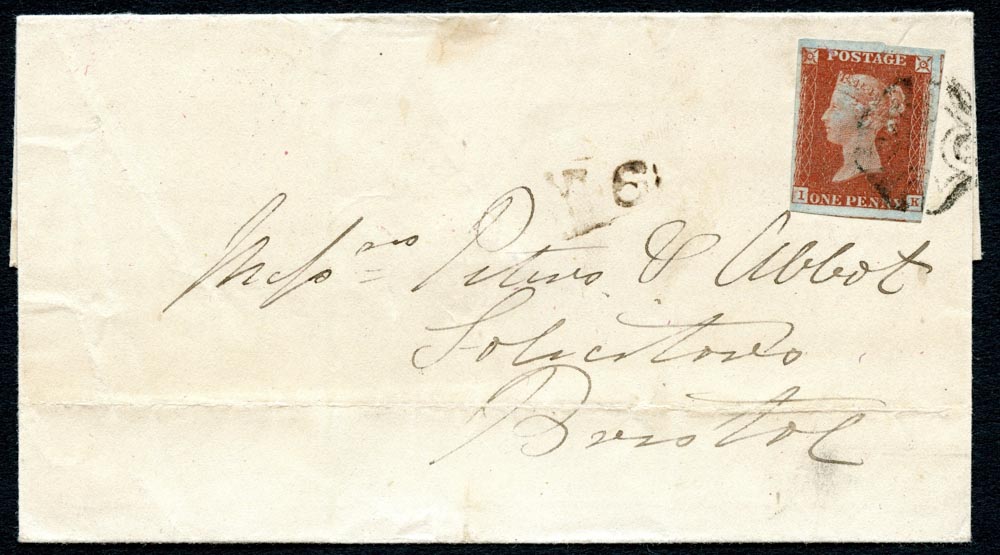 POSTAGE
I ONE PENNY K
6
Messrs Peters & Abbot
Solicitors
Bristol